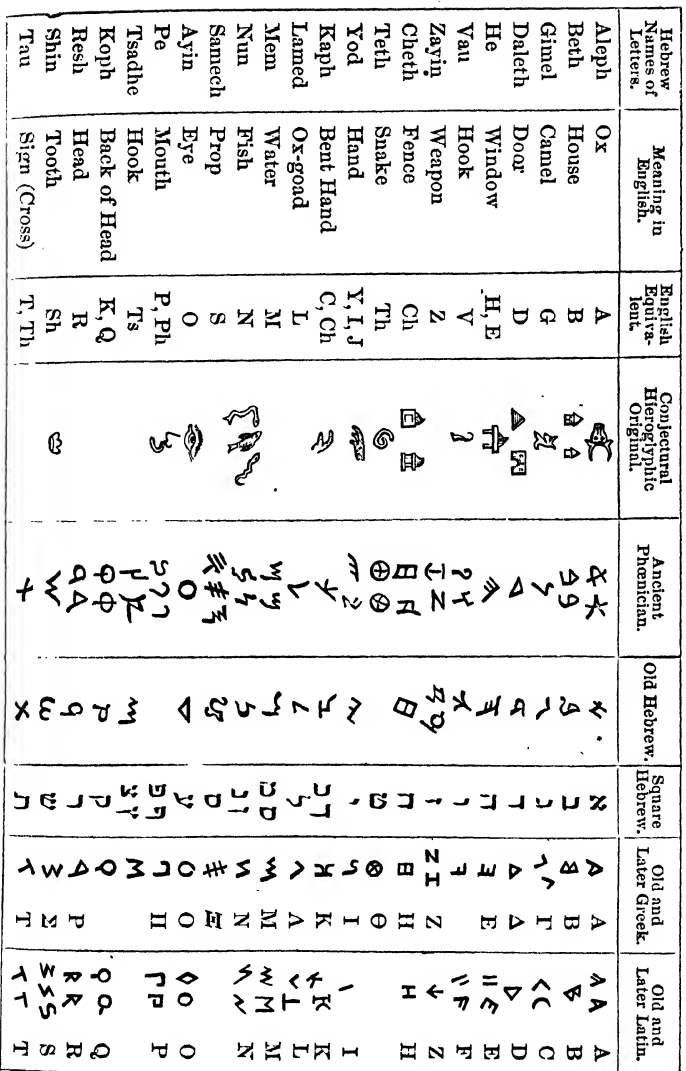 Hebrew Names of Letters. Meaning in English. English Equivalent. Conjectural Hieroglyphic Original. Ancient Phœnician. Old Hebrew. Square Hebrew. Old and Later Greek. Old and Later Latin.
Aleph Ox A א A A
Beth House B ב B B
Gimel Camel G ג Γ C
Daleth Door D ד Δ D
He Window H, E ה E E
Vau Hook V ו F
Zayin Weapon Z ז Z Z
Cheth Fence Ch ח H H
Teth Snake Th ט Θ
Yod Hand Y, I, J י I I
Kaph Bent Hand C, Ch כ ך K K
Lamed Ox-goad L ל Λ L
Mem Water M מ ם M M
Nun Fish N נ ן N N
Samech Prop S ס Ξ
Ayin Eye O ע O O
Pe Mouth P, Ph פ ף Π P
Tsadhe Hook Ts צ ץ
Koph Back of Head K, Q ק Q
Resh Head R ר P R
Shin Tooth Sh ש Σ S
Tau Sign (Cross) T, Th ת T T